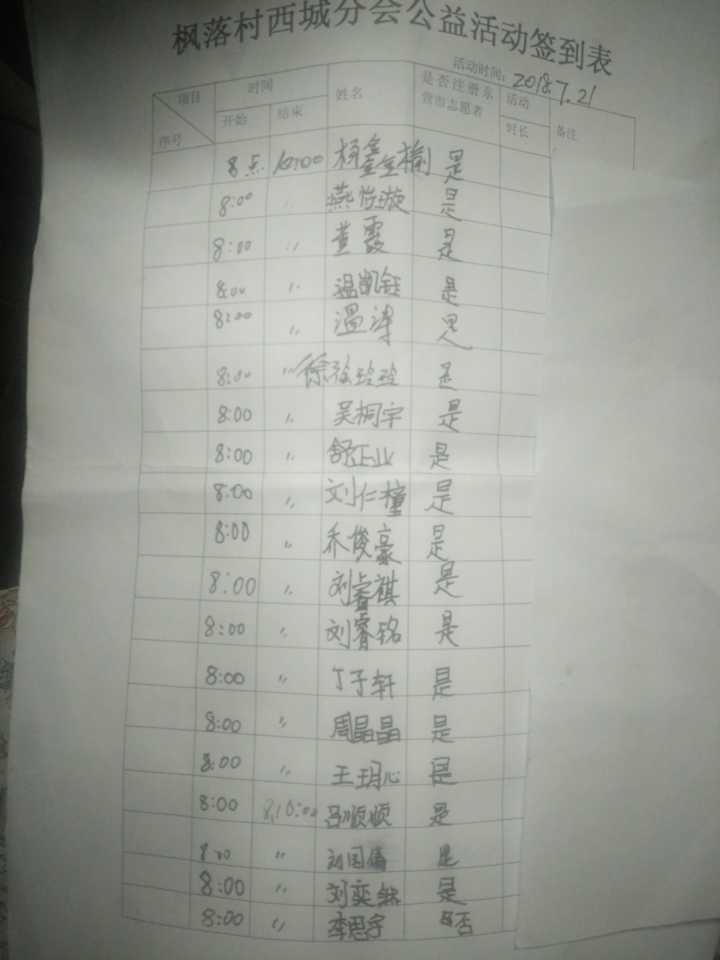 枫落村西城分会公益活动签到表
活动时间：2018.7.21
项目 时间 姓名 是否注册东营市志愿者 活动时长 备注
序号 开始 结束
8点 10:00 杨鑫榆 是
8:00 〃 燕怡璇 是
8:00 〃 黄霞 是
8:00 〃 温凯钰 是
8:00 〃 温涛 是
8:00 〃 徐玲玲 是
8:00 〃 吴桐宇 是
8:00 〃 舒正业 是
8:00 〃 刘仁橦 是
8:00 〃 乔俊豪 是
8:00 〃 刘睿祺 是
8:00 〃 刘睿铭 是
8:00 〃 丁子轩 是
8:00 〃 周晶晶 是
8:00 〃 王玥心 是
8:00 10:00 吕顺顺 是
8:00 〃 刘国 是
8:00 〃 刘奕 是
8:00 〃 李思 否